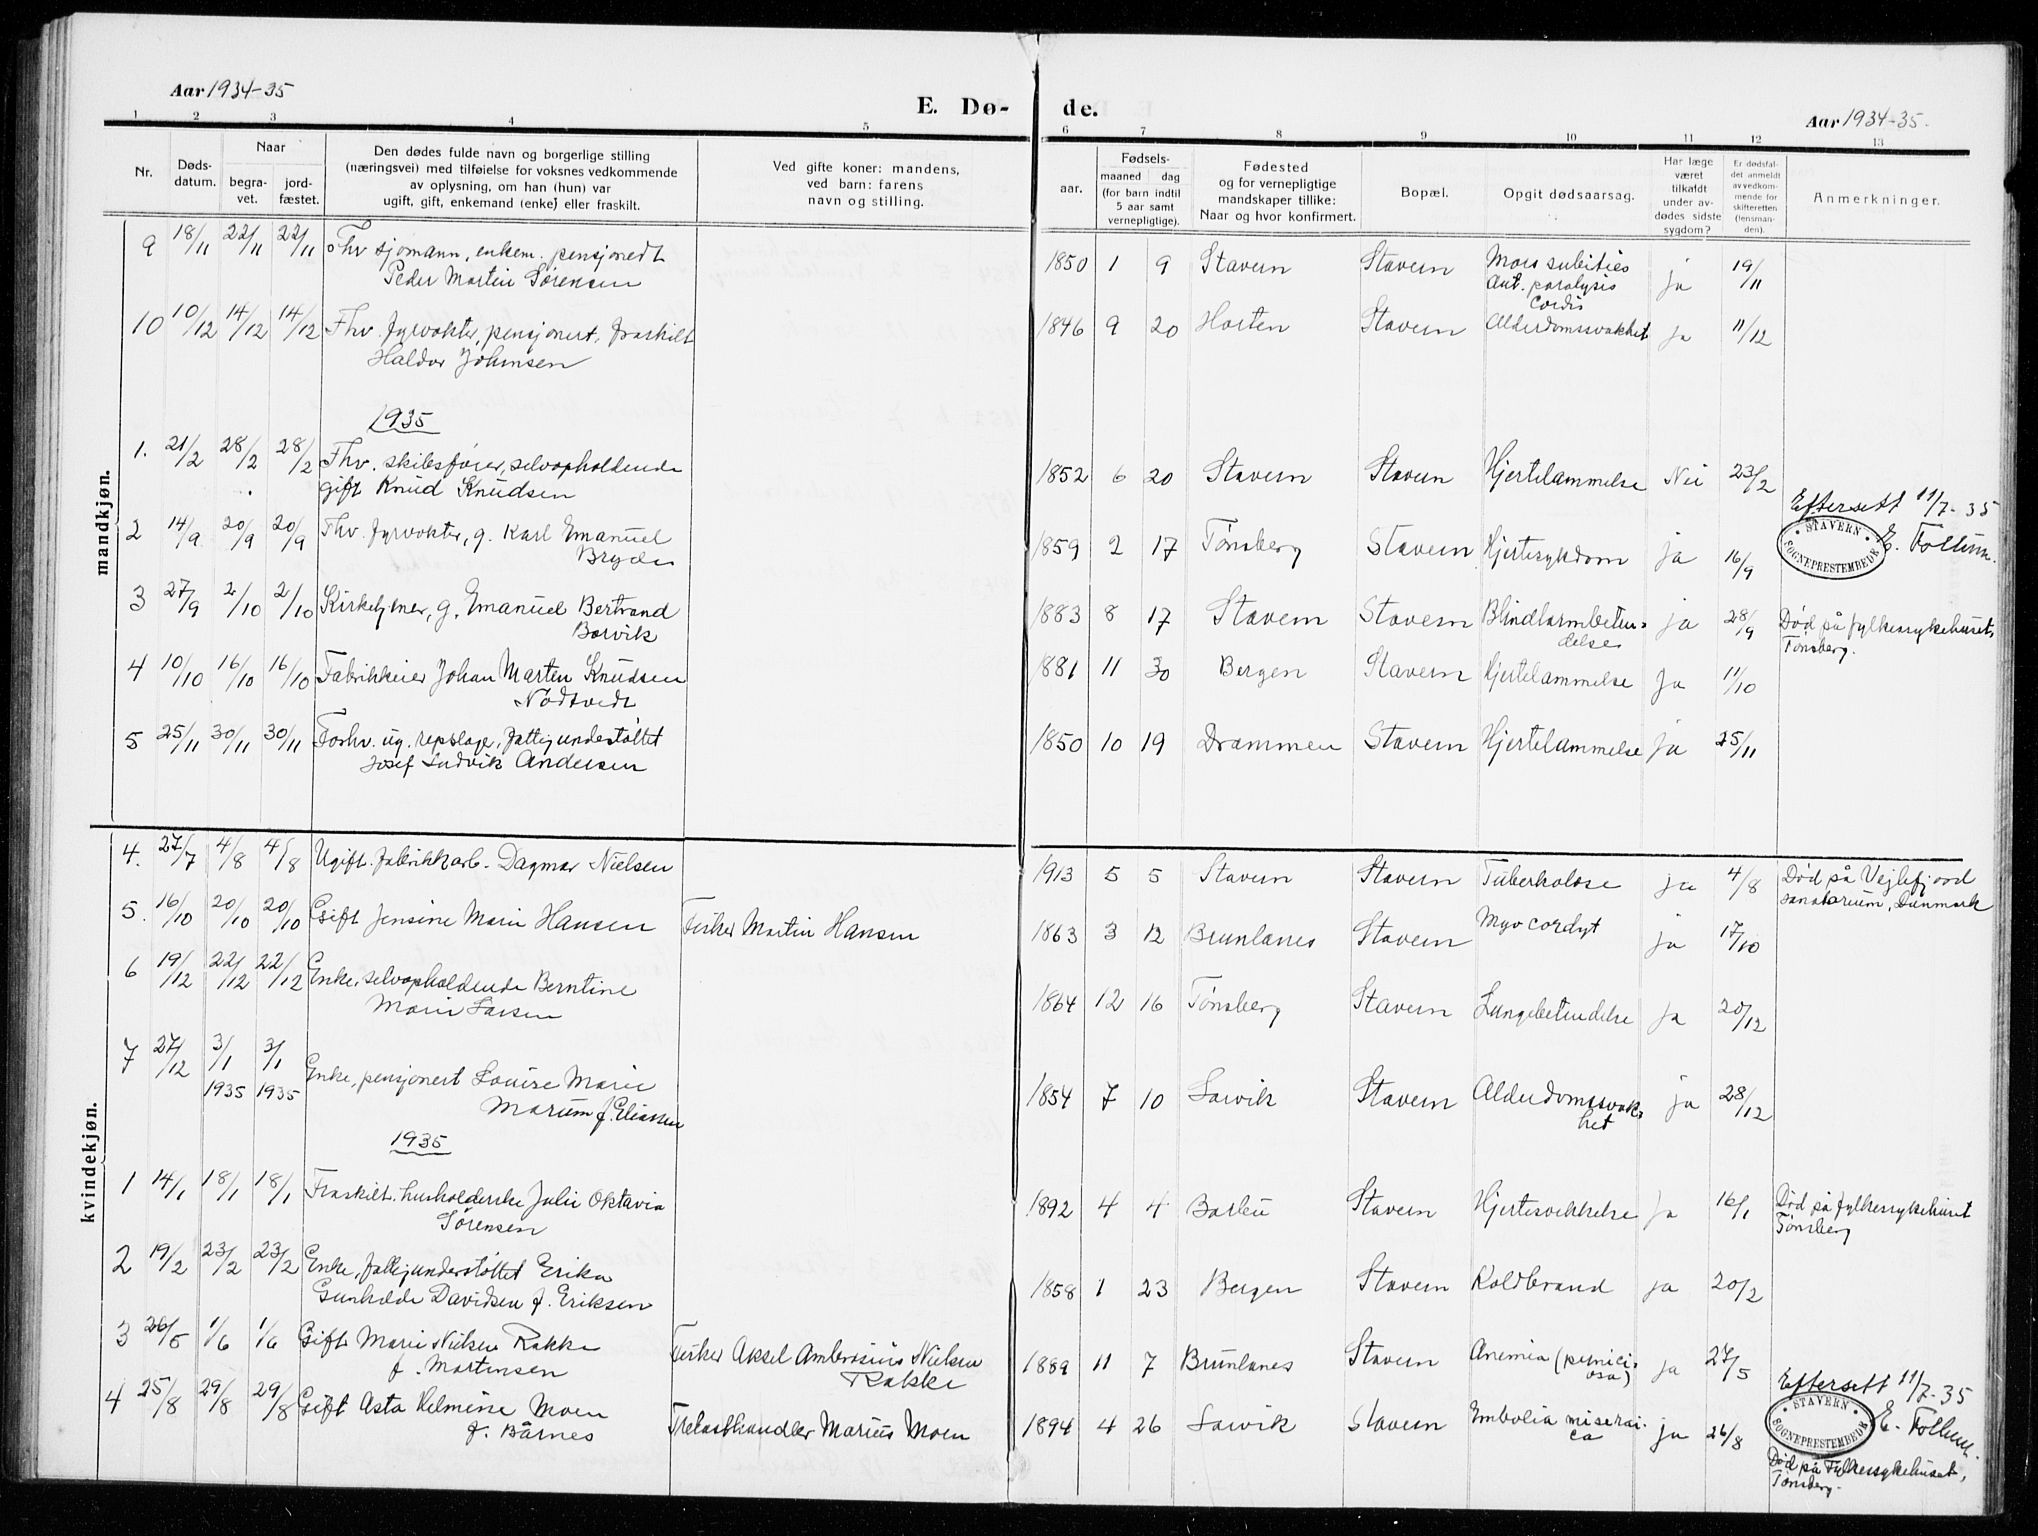 Aar 1934-35
E. Dø- de.
Aar 1934-35.
1 2 3 4 5 6 7 8 9 10 11 12 13
Nr.
Døds-
datum.
Naar
begra-
vet.
jord-
fæstet.
Den dødes fulde navn og borgerlige stilling
(næringsvei) med tilføielse for voksnes vedkommende
av oplysning, om han (hun) var
ugift, gift, enkemand (enke) eller fraskilt.
Ved gifte koner: mandens,
ved barn: farens
navn og stilling.
Fødsels-
aar.
maaned dag
(for barn indtil
5 aar samt
vernepligtige).
Fødested
og for vernepligtige
mandskaper tillike:
Naar og hvor konfirmert.
Bopæl.
Opgit dødsaarsag.
Har læge
været
tilkaldt
under av-
dødes sidste
sygdom?
Er dødsfal-
det anmeldt
av vedkom-
mende for
skifteretten
(lensman-
den).
Anmerkninger.
mandkjøn.
9 18/11 22/11 22/11 Fhv sjømann, enkem. pensjonedt 1850 1 9 Stavern Stavern Mors subities ja 19/11
Peder Martin Sørensen Aut. paralysis
cordis
10 10/12 14/12 14/12 Fhv. fyrvokter, pensjonert, fraskilt 1846 9 20 Horten Stavern Alderdomssvakhet ja 11/12
Haldor Johnsen
1935
1. 21/2 28/2 28/2 Fhv. skibsfører, selvopholdende 1852 6 20 Stavern Stavern Hjertelammelse Nei 23/2
gift Knud Knudsen Eftersett 11/7-35
2 14/9 20/9 20/9 Fhv. fyrvokter, g. Karl Emanuel 1859 2 17 Tønsberg Stavern Hjertesykdom ja 16/9 STAVERN SOGNEPRESTEMBEDE E. Follum.
Bryde
3 27/9 2/10 2/10 Kirketjener, g. Emanuel Bertrand 1883 8 17 Stavern Stavern Blindtarmbeten- ja 28/9 Død på fylkessykehuset,
Borvik delse Tønsberg.
4 10/10 16/10 16/10 Fabrikkeier Johan Marten Knudsen 1881 11 30 Bergen Stavern Hjertelammelse Ja 11/10
Nødtvedt
5 25/11 30/11 30/11 Forhv. ug. repslager, fattigunderstøttet 1850 10 19 Drammen Stavern Hjertelammelse Ja 25/11
Josef Ludvik Andersen
kvindekjøn.
4. 27/7 4/8 4/8 Ugift. fabrikkarb. Dagmar Nielsen 1913 5 5 Stavern Stavern Tuberkolose ja 4/8 Død på Vejlefjord
sanatorium, Danmark
5. 16/10 20/10 20/10 Gift Jensine Marie Hansen Fisker Martin Hansen 1863 3 12 Brunlanes Stavern Myocordyt ja 17/10
6 19/12 22/12 22/12 Enke, selvopholdende Berntine 1864 12 16 Tønsberg Stavern Lungebetendelse Ja 20/12
Marie Larsen
7 27/12 3/1 3/1 Enke, pensjonert Louise Marie 1854 7 10 Larvik Stavern Alderdomssvak- ja 28/12
1935 1935 Marum f. Eliassen het
1935
1 14/1 18/1 18/1 Fraskilt, husholderske Julie Oktavia 1892 4 4 Borbu Stavern Hjertesvekkelse Ja 16/1 Død på fylkessykehuset
Sørensen Tønsberg
2 19/2 23/2 23/2 Enke, fattigunderstøttet Erika 1858 1 23 Bergen Stavern Koldbrand ja 20/2
Gunhilde Davidsen f. Eriksen
3 26/5 1/6 1/6 Gift Marie Nielsen Rakke Fisker Aksel Ambrosius Nielsen 1889 11 7 Brunlanes Stavern Anemia (pernici- ja 27/5
f. Martinsen Rakke osa) Eftersett 11/7-35
4 25/8 29/8 29/8 Gift Asta Helmine Moen Trelasthandler Marius Moen 1894 4 26 Larvik Stavern Embolia miserai- ja 26/8 STAVERN SOGNEPRESTEMBEDE E. Follum.
f. Bårnes ca Død på Fylkessykehuset,
Tønsberg.